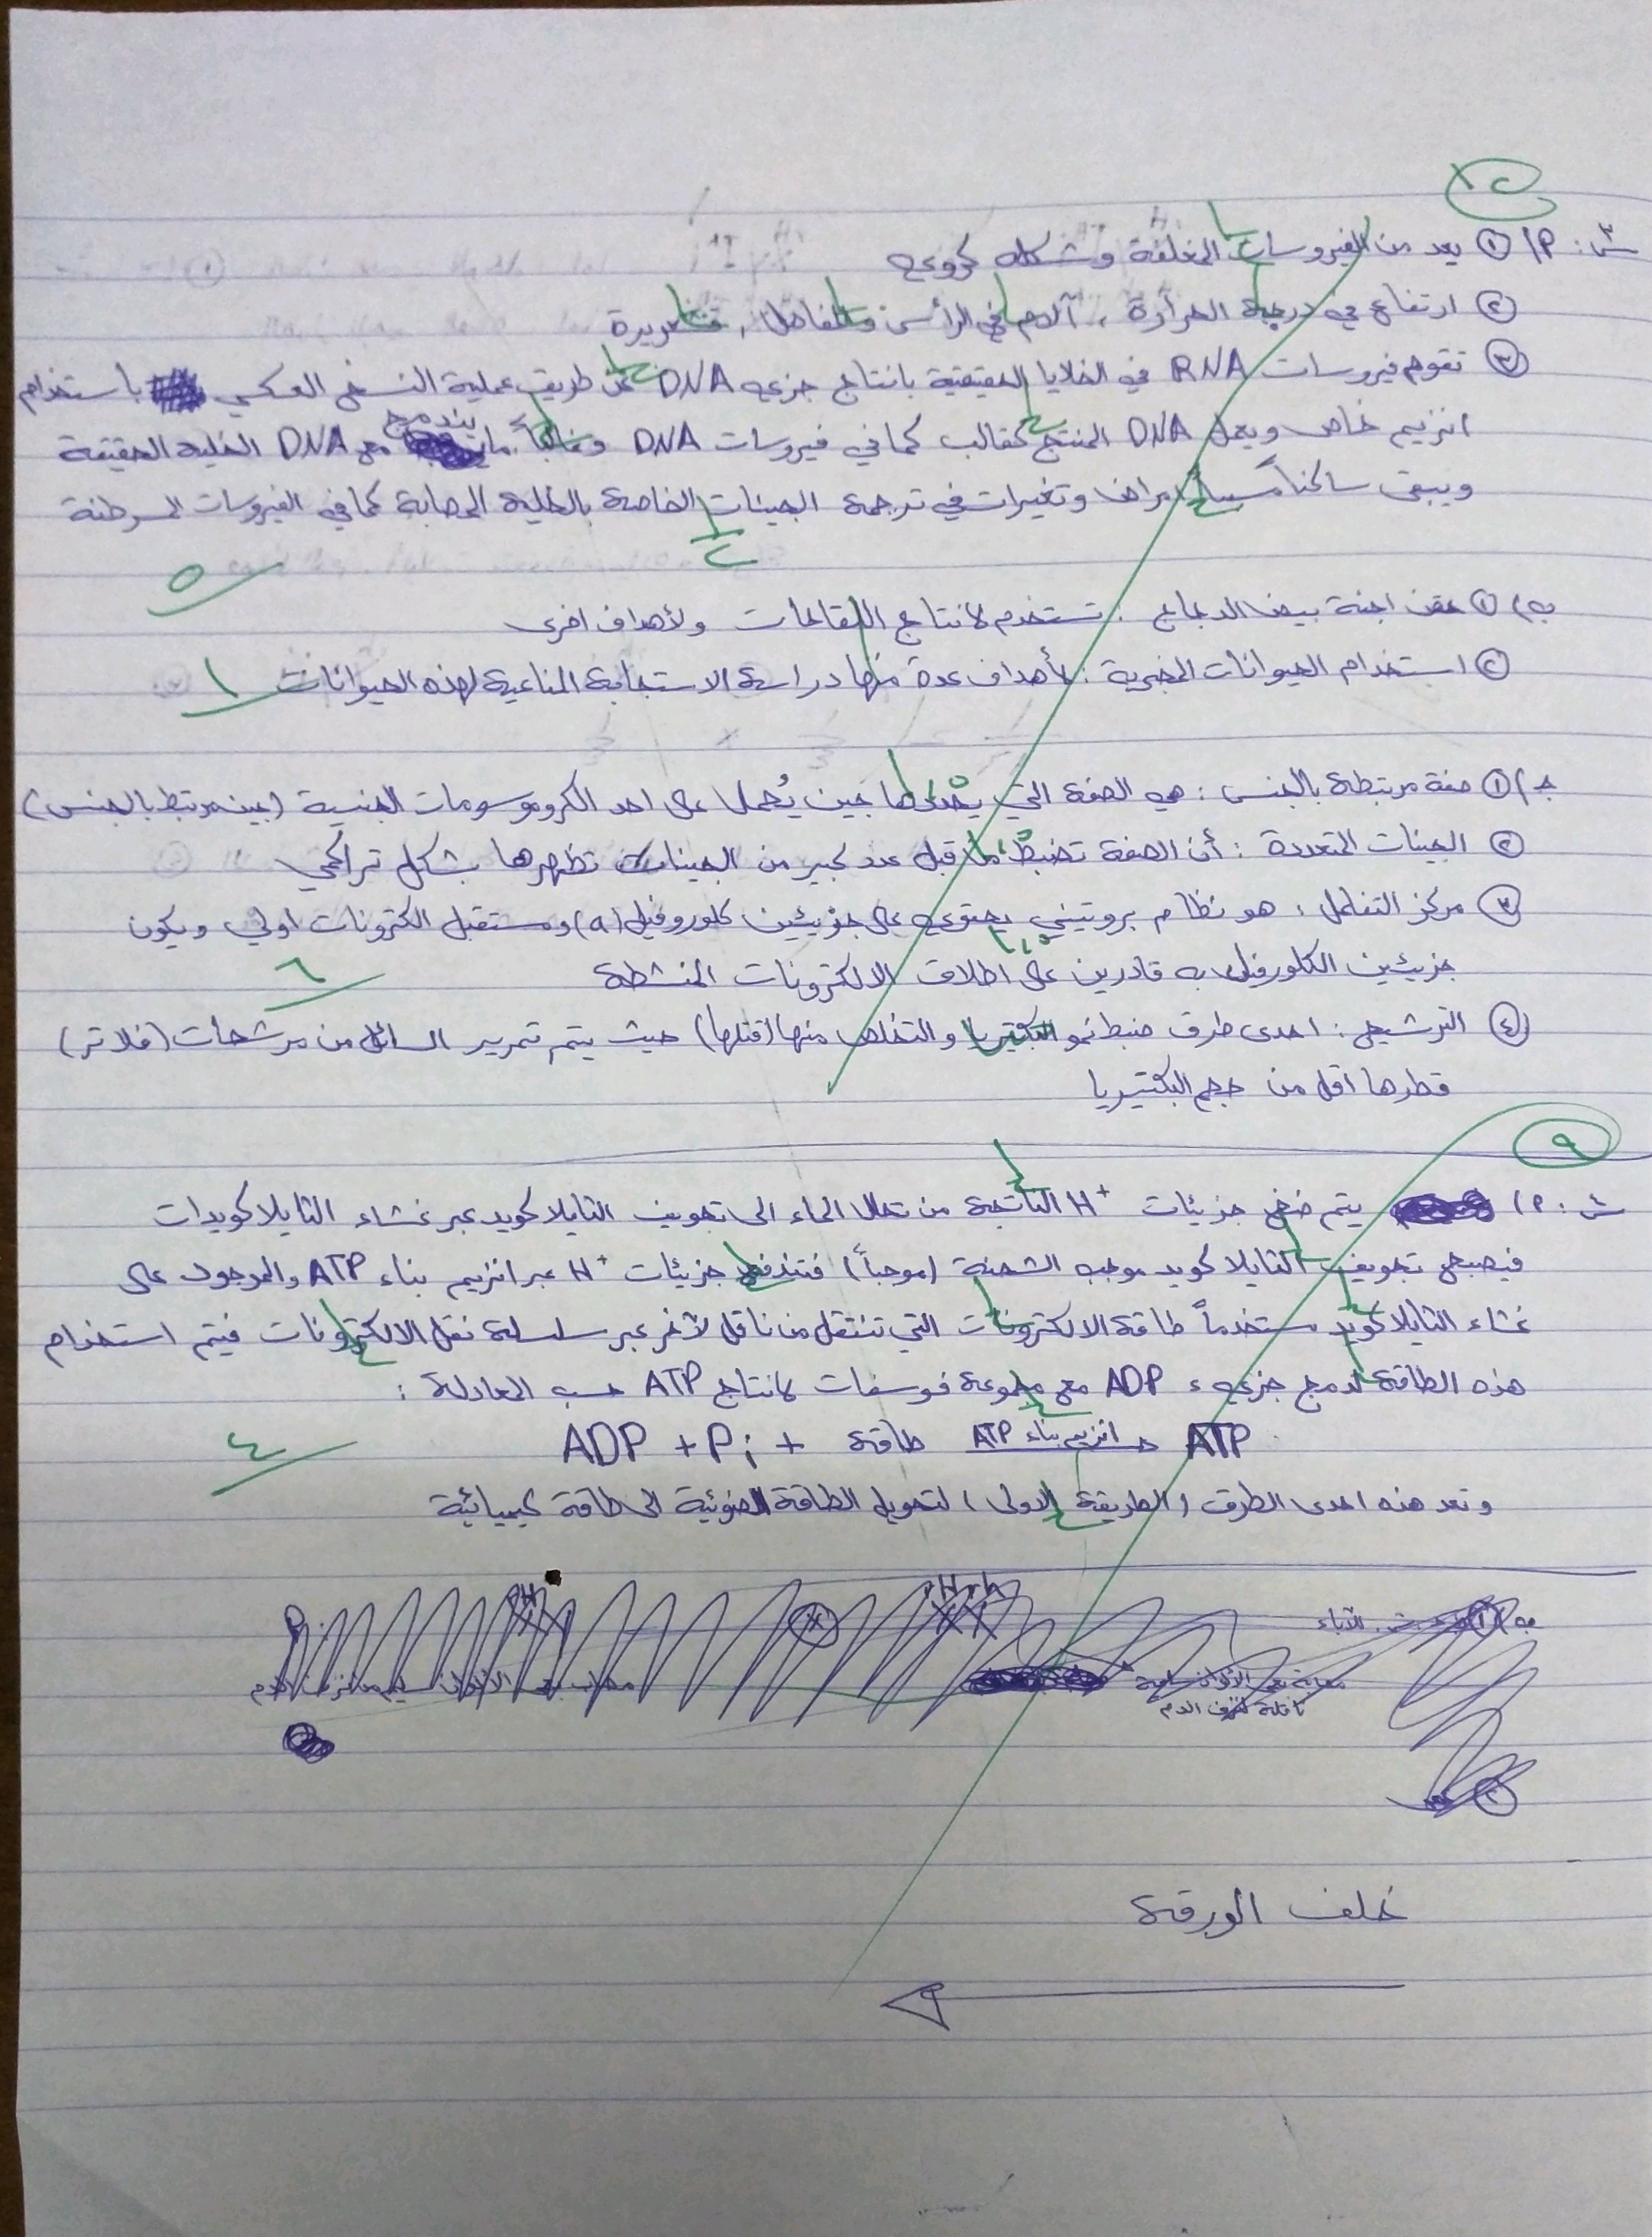 ١٢
س٣: أ) ① يعد من الفيروسات المغلفة وشكله كروي
② ارتفاع في درجة الحرارة ، آلام في الرأس والمفاصل ، قشعريرة
③ تقوم فيروسات RNA في الخلايا الحقيقية بانتاج جزيء DNA عن طريق عملية النسخ العكسي باستخدام
انزيم خاص ويعمل DNA المنتج كقالب كما في فيروسات DNA وغالباً ما يندمج مع DNA الخلية الحقيقية
ويبقى ساكناً مسبباً امراض وتغيرات في ترجمة الجينات الخاصة بالخلية المصابة كما في الفيروسات المسرطنة
٥
ب) ① حقن اجنة بيض الدجاج : تستخدم لانتاج اللقاحات ولأهداف اخرى
② استخدام الحيوانات المخبرية : لأهداف عدة منها دراسة الاستجابة المناعية لهذه الحيوانات ١
جـ) ① صفة مرتبطة بالجنس : هي الصفة التي يحددها جين يُحمل على احد الكروموسومات الجنسية (جين مرتبط بالجنس)
② الجينات المتعددة : أن الصفة تضبط من قبل عدد كبير من الجينات تظهرها بشكل تراكمي
③ مركز التفاعل : هو نظام بروتيني يحتوي على جزيئين كلوروفيل (a) ومستقبل الكترونات اولي ويكون
جزيئين الكلورفيل به قادرين على اطلاق الالكترونات المنشطة ٦
④ الترشيح : احدى طرق ضبط نمو البكتيريا والتخلص منها (قتلها) حيث يتم تمرير السائل من مرشحات (فلاتر)
قطرها أقل من حجم البكتيريا
٩
أ) يتم ضخ جزيئات H⁺ الناتجة من تحلل الماء الى تجويف الثايلاكويد عبر غشاء الثايلاكويدات
فيصبح تجويف الثايلاكويد موجب الشحنة (موجباً) فتندفع جزيئات H⁺ عبر انزيم بناء ATP والموجود على
غشاء الثايلاكويد مستخدماً طاقة الالكترونات التي تنتقل من ناقل لآخر عبر سلسلة نقل الالكترونات فيتم استخدام
هذه الطاقة لدمج جزيء ADP مع مجموعة فوسفات لانتاج ATP حسب المعادلة :
ADP + Pi + طاقة انزيم بناء ATP → ATP
٤
وتعد هذه احدى الطرق (الطريقة الاولى) لتحويل الطاقة الضوئية الى طاقة كيميائية
خلف الورقة